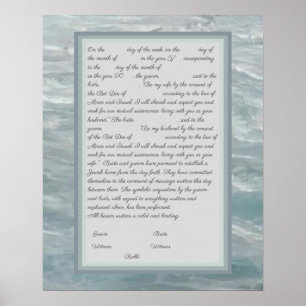 On the day of the week, on the day of
the month of in the year 57 corresponding
to the day of the month of
in the year 20 , the groom, said to the
bride, "Be my wife by the consent of
the Bet Din of according to the law of
Moses and Israel. I will cherish and respect you and
work for our mutual sustenance, living with you as your
husband." The bride, said to the
groom, "Be my husband by the consent
of the Bet Din of according to the law of
Moses and Israel. I will cherish and respect you and
work for our mutual sustenance, living with you as your
wife." Bride and groom have promised to establish a
Jewish home from this day forth. They have committed
themselves to the covenant of marriage written this day
between them. The symbolic acquisition by the groom
and bride, with regard to everything written and
explained above, has been performed.
All herein written is valid and binding.
Groom Bride
Witness Witness
Rabbi